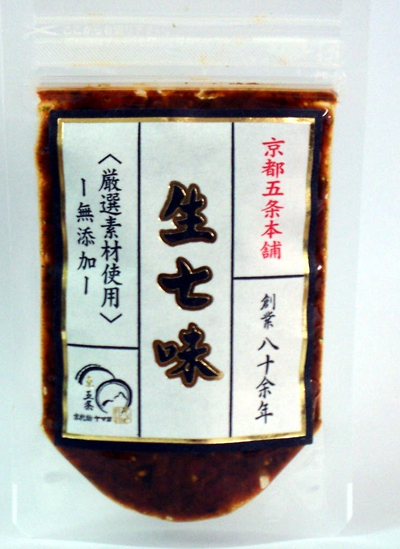 京都五条本舗
創業八十余年
生七味
〈厳選素材使用〉
ー無添加ー
京
五条